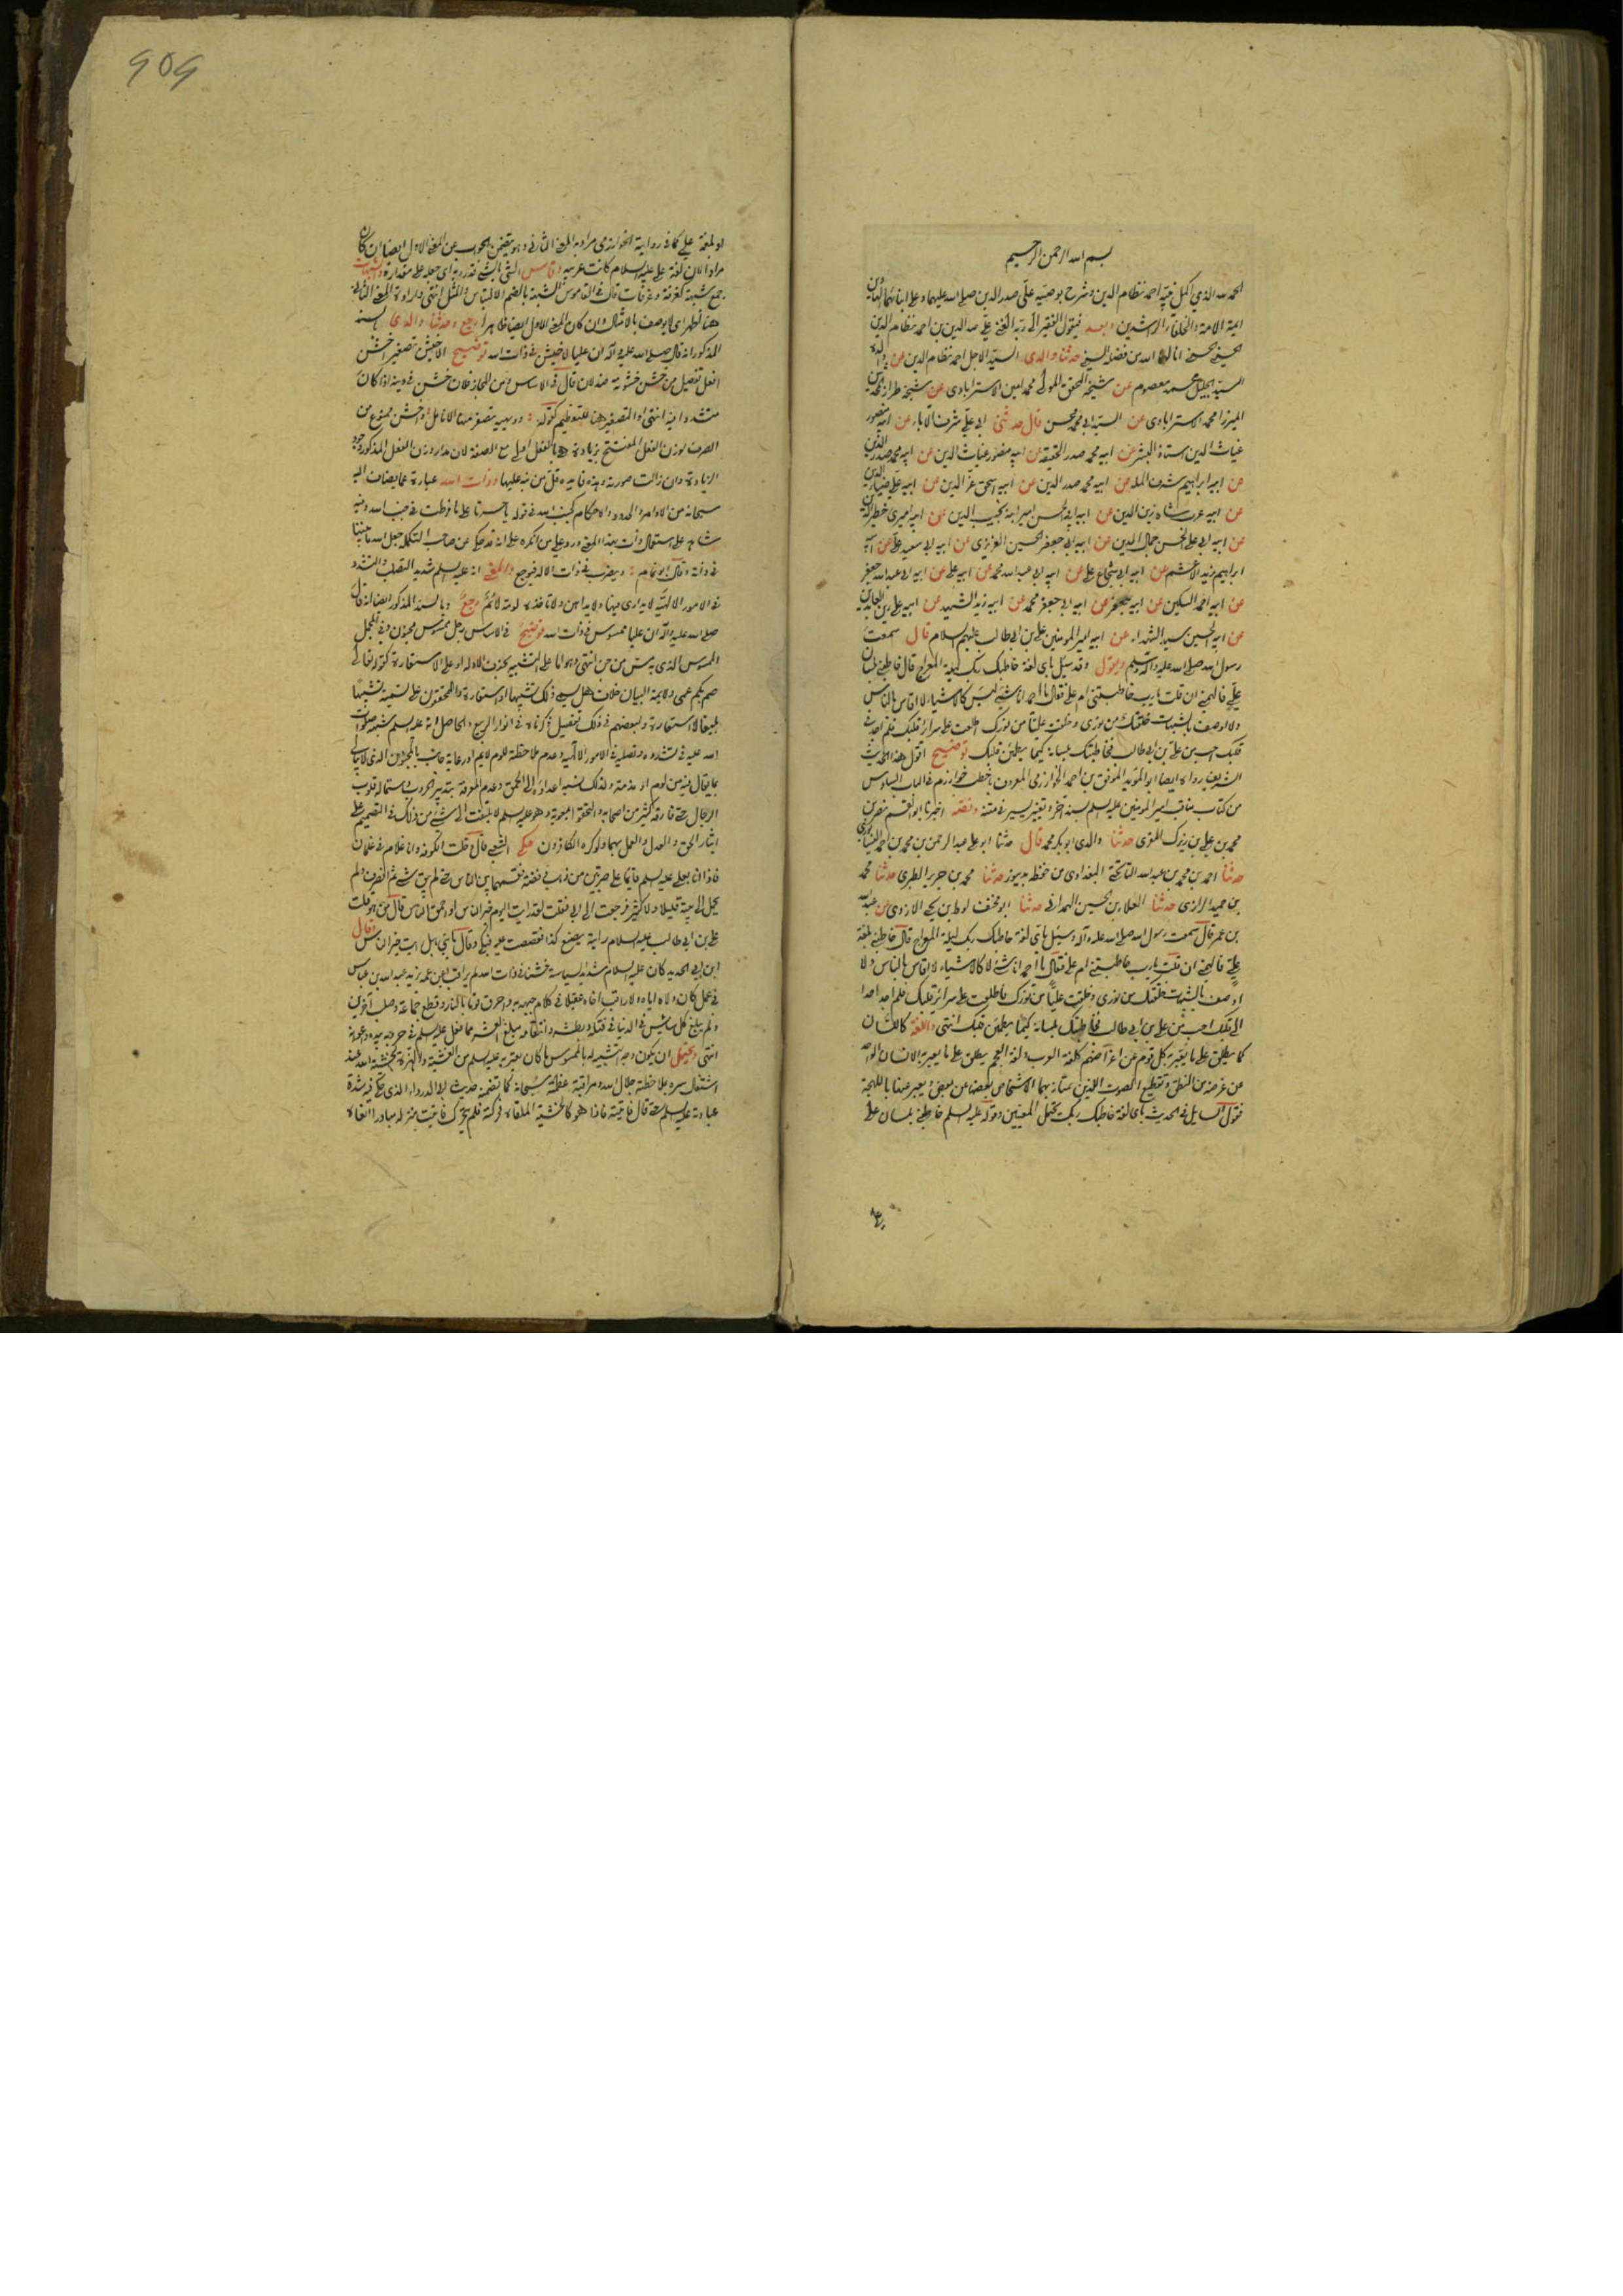 بسم الله الرحمن الرحيم
الحمد لله الذي اكمل نبيه احمد نظام الدين وشرح بوصيه علي صدر الدين صلى الله عليهما وعلى ابنائهما الهادين
ائمة الامة والخلفاء الراشدين وبعد فيقول الفقير الى ربه الغني علي صدر الدين بن احمد نظام الدين
الحسيني الحسني انالهما الله من فضله السني حدثنا والدي السيد الاجل احمد نظام الدين عن والده
السيد الجليل محمد معصوم عن شيخه المحقق المولى محمد امين الاسترابادي عن شيخه طراز المحدثين
الميرزا محمد الاسترابادي عن السيد ابي محمد محسن قال حدثني ابي علي شرف الاباء عن ابيه منصور
غياث الدين استاذ البشر عن ابيه محمد صدر الحقيقة عن ابيه منصور غياث الدين عن ابيه محمد صدر الدين
عن ابيه ابراهيم شرف الملة عن ابيه محمد صدر الدين عن ابيه اسحق عز الدين عن ابيه علي ضياء الدين
عن ابيه عربشاه زين الدين عن ابيه ابي الحسن امير انبه نجيب الدين عن ابيه اميري خطير الدين
عن ابيه ابي علي الحسن جمال الدين عن ابيه ابي جعفر الحسين العزيزي عن ابيه ابي سعيد علي عن ابيه
ابراهيم زيد الاعشم عن ابيه ابي شجاع علي عن ابيه ابي عبد الله محمد عن ابيه علي عن ابيه ابي عبد الله جعفر
عن ابيه احمد السكين عن ابيه جعفر عن ابيه ابي جعفر محمد عن ابيه زيد الشهيد عن ابيه علي زين العابدين
عن ابيه الحسين سيد الشهداء عن ابيه امير المؤمنين علي بن ابي طالب عليهم السلام قال سمعت
رسول الله صلى الله عليه واله وسلم ويقول وقد سئل باي لغة خاطبك ربك ليلة المعراج قال خاطبني بلسان
علي فالهمني ان قلت يا رب خاطبتني ام علي فقال يا احمد انا شيء ليس كالاشياء لا اقاس بالناس
ولا اوصف بالشبهات خلقتك من نوري وخلقت عليا من نورك اطلعت على سرائر قلبك فلم اجد في
قلبك احب من علي بن ابي طالب فخاطبتك بلسانه كيما يطمئن قلبك توضيح اقول هذا الحديث
الشريف رواه ايضا ابو المؤيد الموفق بن احمد الخوارزمي المعروف باخطب خوارزم في الباب السادس
من كتاب مناقب امير المؤمنين عليه السلم بسند آخر وتغيير يسير في متنه ونصه اخبرنا ابو القسم نصر بن
محمد بن علي بن زيرك المقري حدثنا والدي ابو بكر محمد قال حدثنا ابو علي عبد الرحمن بن محمد بن احمد النيسابوري
حدثنا احمد بن محمد بن عبد الله البغدادي من حفظه بدينور حدثنا محمد بن جرير الطبري حدثنا محمد
بن حميد الرازي حدثنا العلاء بن الحسين الهمداني حدثنا ابو مخنف لوط بن يحيى الازدي عن عبد الله
بن عمر قال سمعت رسول الله صلى الله عليه وآله وسئل باي لغة خاطبك ربك ليلة المعراج قال خاطبني بلغة
علي فالهمني ان قلت يا رب خاطبتني ام علي فقال يا احمد انا شيء لا كالاشياء لا اقاس بالناس ولا
اوصف بالشبهات خلقتك من نوري وخلقت عليا من نورك فاطلعت على سرائر قلبك فلم اجد احدا
الى قلبك احب من علي بن ابي طالب فخاطبتك بلسانه كيما يطمئن قلبك انتهى واللغة كاللسان
كما يطلق على ما يعبر به كل قوم عن اغراضهم كلغة العرب ولغة العجم يطلق على ما يعبر به الانسان الواحد
عن غرضه من النطق وتقطيع الصوت اللذين يمتاز بهما الاشخاص بعضها من بعض ويعبر عنها باللهجة
فقول السايل في الحديث باي لغة خاطبك ربك يحتمل المعنيين وقوله عليه السلم خاطبني بلسان علي
909
او بلغة علي كما في رواية الخوارزمي مراد به المعنى الثاني وهو يتضمن الجواب عن المعنى الاول ايضا ان كان
مرادا لان لغة علي عليه السلام كانت عربية وقاس الشيء بالشيء قدره به اي جعله على مقداره والشبهات
جمع شبهة كغرفة وغرفات قال في القاموس الشبهة بالضم الالتباس والمثل انتهى وارادة المعنى الثاني
هنا اظهر اي لا يوصف بالامثال وان كان المعنى الاول ايضا ظاهرا رجع وحدثنا والدي بسنده
المذكور انه قال صلى الله عليه وآله ان عليا لاخيشن في ذات الله توضيح الاخيشن تصغير اخشن
افعل تفضيل من خشن خشونة ضد لان قال في الاساس ومن المجاز فلان خشن في دينه اذا كان
متشددا فيه انتهى والتصغير هنا للتعظيم كقوله دويهية تصفر منها الانامل واخشن ممنوع من
الصرف لوزن الفعل المفتتح بزيادة هي بالفعل اولى مع الصفة
الزيادة وان زالت صورته وهذه فايدة قل من نبه عليها وذات الله عبارة عما يضاف اليه
سبحانه من الاوامر والحدود والاحكام كجنب الله في قوله يا حسرتا على ما فرطت في جنب الله وفيه
شاهد على استعمال ذات بهذا المعنى ورد على من انكره
في ذاته وقال ابو تمام ويضرب في ذات الاله فيوجع والمعنى انه عليه السلم شديد التصلب والتشدد
في الامور الالهية لا يداري فيها ولا يداهن ولا تاخذه لومة لائم رجع وبالسند المذكور ايضا انه قال
صلى الله عليه وآله ان عليا ممسوس في ذات الله توضيح في الاساس رجل ممسوس مجنون وفي المجمل
الممسوس الذي به مس من جن انتهى وهو اما على التشبيه بحذف الاداة او على الاستعارة كقوله تعالى
صم بكم عمي ولائمة البيان خلاف هل يسمى ذلك تشبيها او استعارة والمحققون على تسميته تشبيها
بليغا لا استعارة ولبعضهم في ذلك تفصيل ذكرناه في انوار الربيع والحاصل انه عليه السلم شبهه صلوات
الله عليه في تشدده وتصلبه في الامور الالهية وعدم ملاحظة للوم لايم او رعاية جانب بالمجنون الذي لا يبالي
بما يقال فيه من لوم او مذمة ولذلك نسبه اعداؤه الى الحمق وعدم المعرفة بتدبير الحروب واستمالة قلوب
الرجال حتى فارقه كثير من اصحابه والتحقوا بمعوية وهو عليه السلم لا يلتفت الى شيء من ذلك في التصميم على
ايثار الحق والعدل والعمل بهما ولو كره الكافرون حكى الشعبي قال دخلت الكوفة وانا غلام في غلمان
فاذا انا بعلي عليه السلم قايما على صرتين من ذهب وفضة فقسمها بين الناس حتى لم يبق شيء ثم انصرف ولم
يحمل الى بيته قليلا ولا كثيرا فرجعت الى ابي فقلت لقد رايت اليوم خير الناس او احمق الناس قال من هو قلت
علي بن ابي طالب عليه السلام رايته يصنع كذا فقصصت عليه فبكى وقال يا بني بل رايت خير الناس وقال
ابن ابي الحديد كان عليه السلام شديد السياسة خشنا في ذات الله لم يراقب ابن عمه عبد الله بن عباس
في عمل كان ولاه اياه ولا راقب اخاه عقيلا في كلام جبهه به واحرق قوما بالنار وقطع جماعة وصلب آخرين
ولم يبلغ كل سايس في الدنيا في فتكه وبطشه وانتقامه مبلغ العشر مما فعل عليه السلم في حروبه بيده واعوانه
انتهى ويحتمل ان يكون وجه التشبيه له بالممسوس ما كان يعتريه عليه السلم من الغشية والهزة لخشية الله عند
اشتغال سره بملاحظة جلال الله ومراقبة عظمته سبحانه كما تضمنه حديث ابي الدرداء الذي حكى فيه شدة
عبادته عليه السلم حتى قال فاتيته فاذا هو كالخشبة الملقاة فحركته فلم يتحرك فاتيت منزله مبادرا انعاه